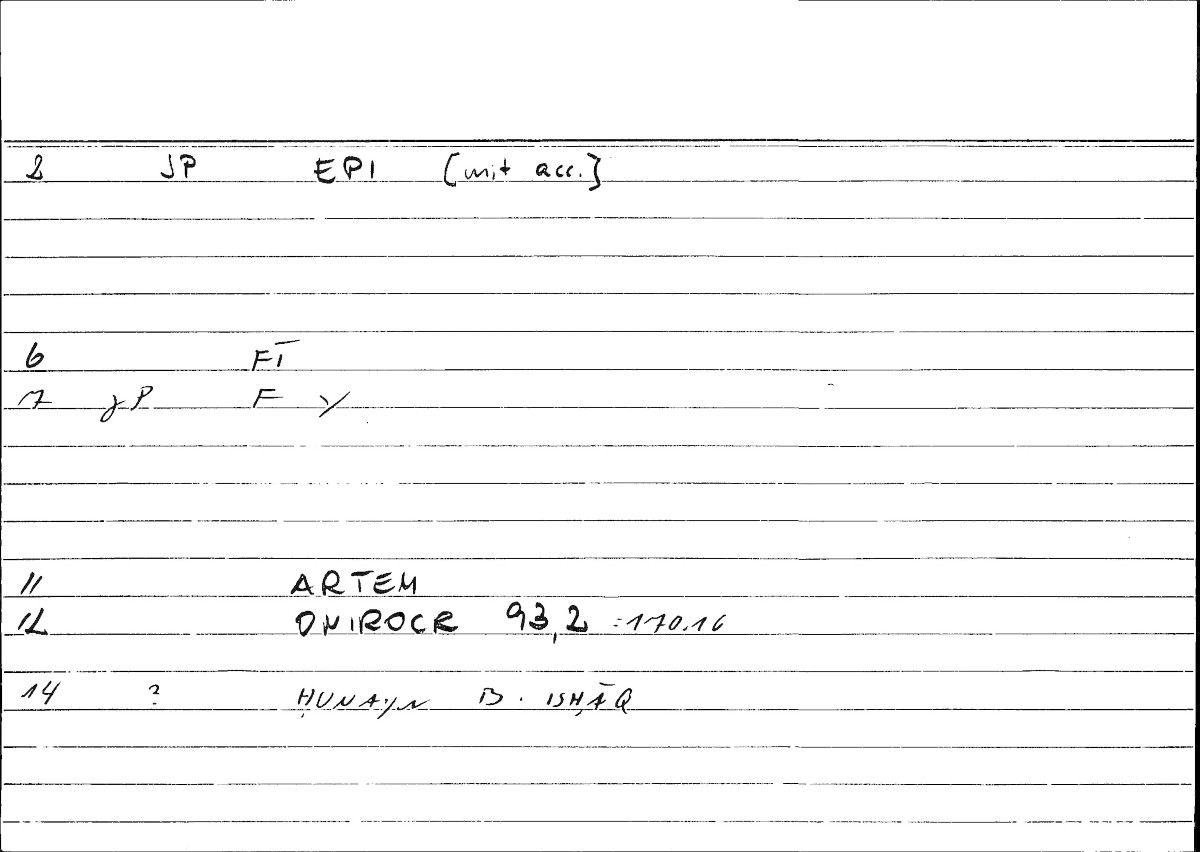 2 JP EPI [mit acc.]
6 FĪ
7 JP F Y
11 ARTEM
12 ONIROCR 93,2 :170.16
14 ? ḤUNAYN B. ISḤĀQ